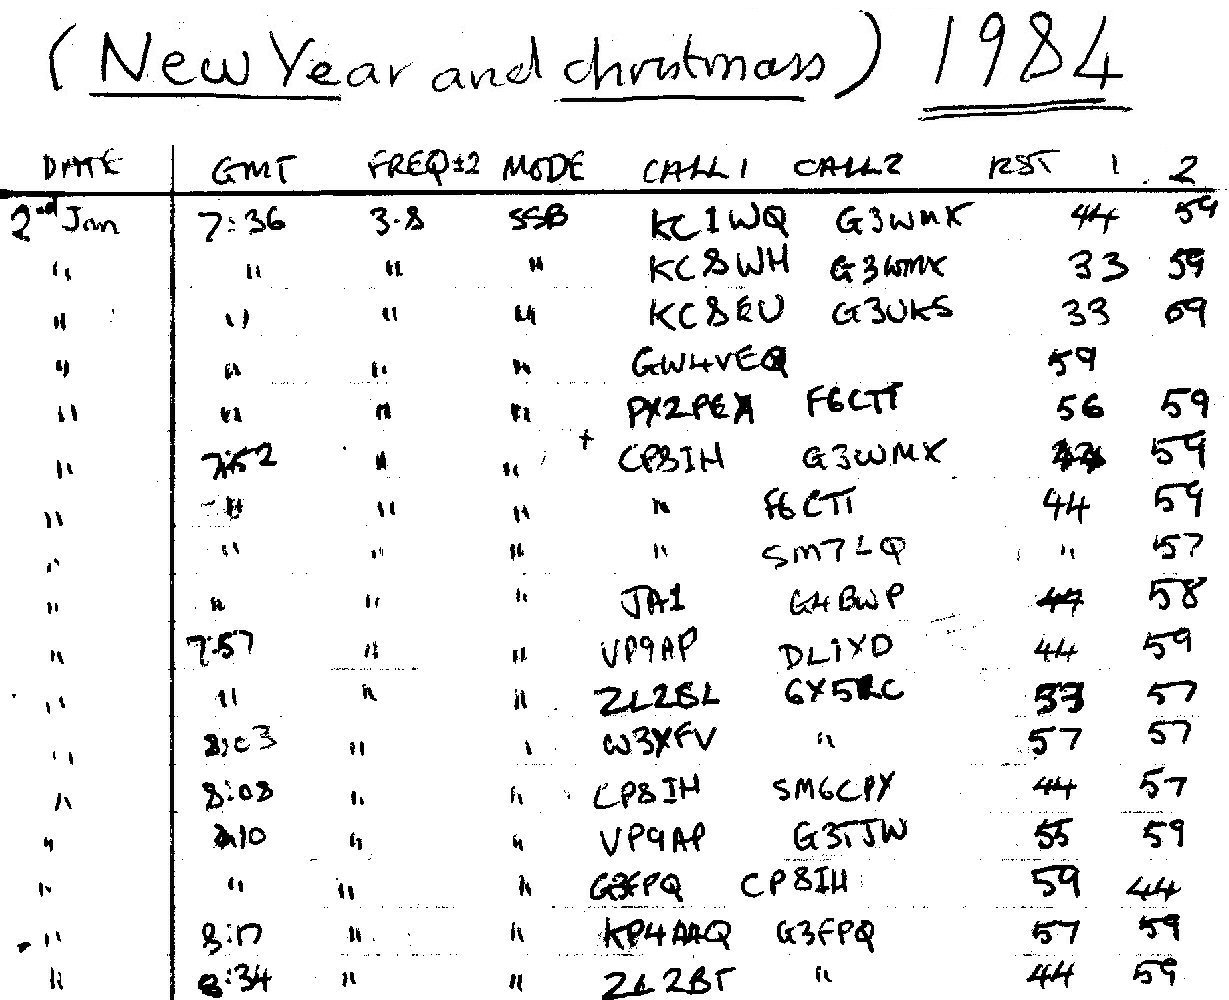 (New Year and christmass) 1984
DATE GMT FREQ±2 MODE CALL1 CALL2 RST 1 2
2nd Jan 7:36 3.8 SSB KC1WQ G3WMX 44 59
" " " " KC8WH G3WMX 33 59
" " " " KC8EU G3UKS 33 59
" " " " GW4VEQ 59
" " " " F6CTT 56 59
" 7:52 " " + CP8IH G3WMX 59
" " " " " F6CTT 44 59
" " " " " SM7LQ " 57
" " " " JA1 G4BWP 58
" 7:57 " " VP9AP DL1YD 44 59
" " " " ZL2BL 57
" 8:03 " " W3XFV " 57 57
" 8:08 " " CP8IH SM6CPY 44 57
" 10 " " VP9AP G3TJW 55 59
" " " " G3FPQ CP8IH 59 44
" 8:17 " " KP4AAQ G3FPQ 57 59
" 8:34 " " ZL2BT " 44 59